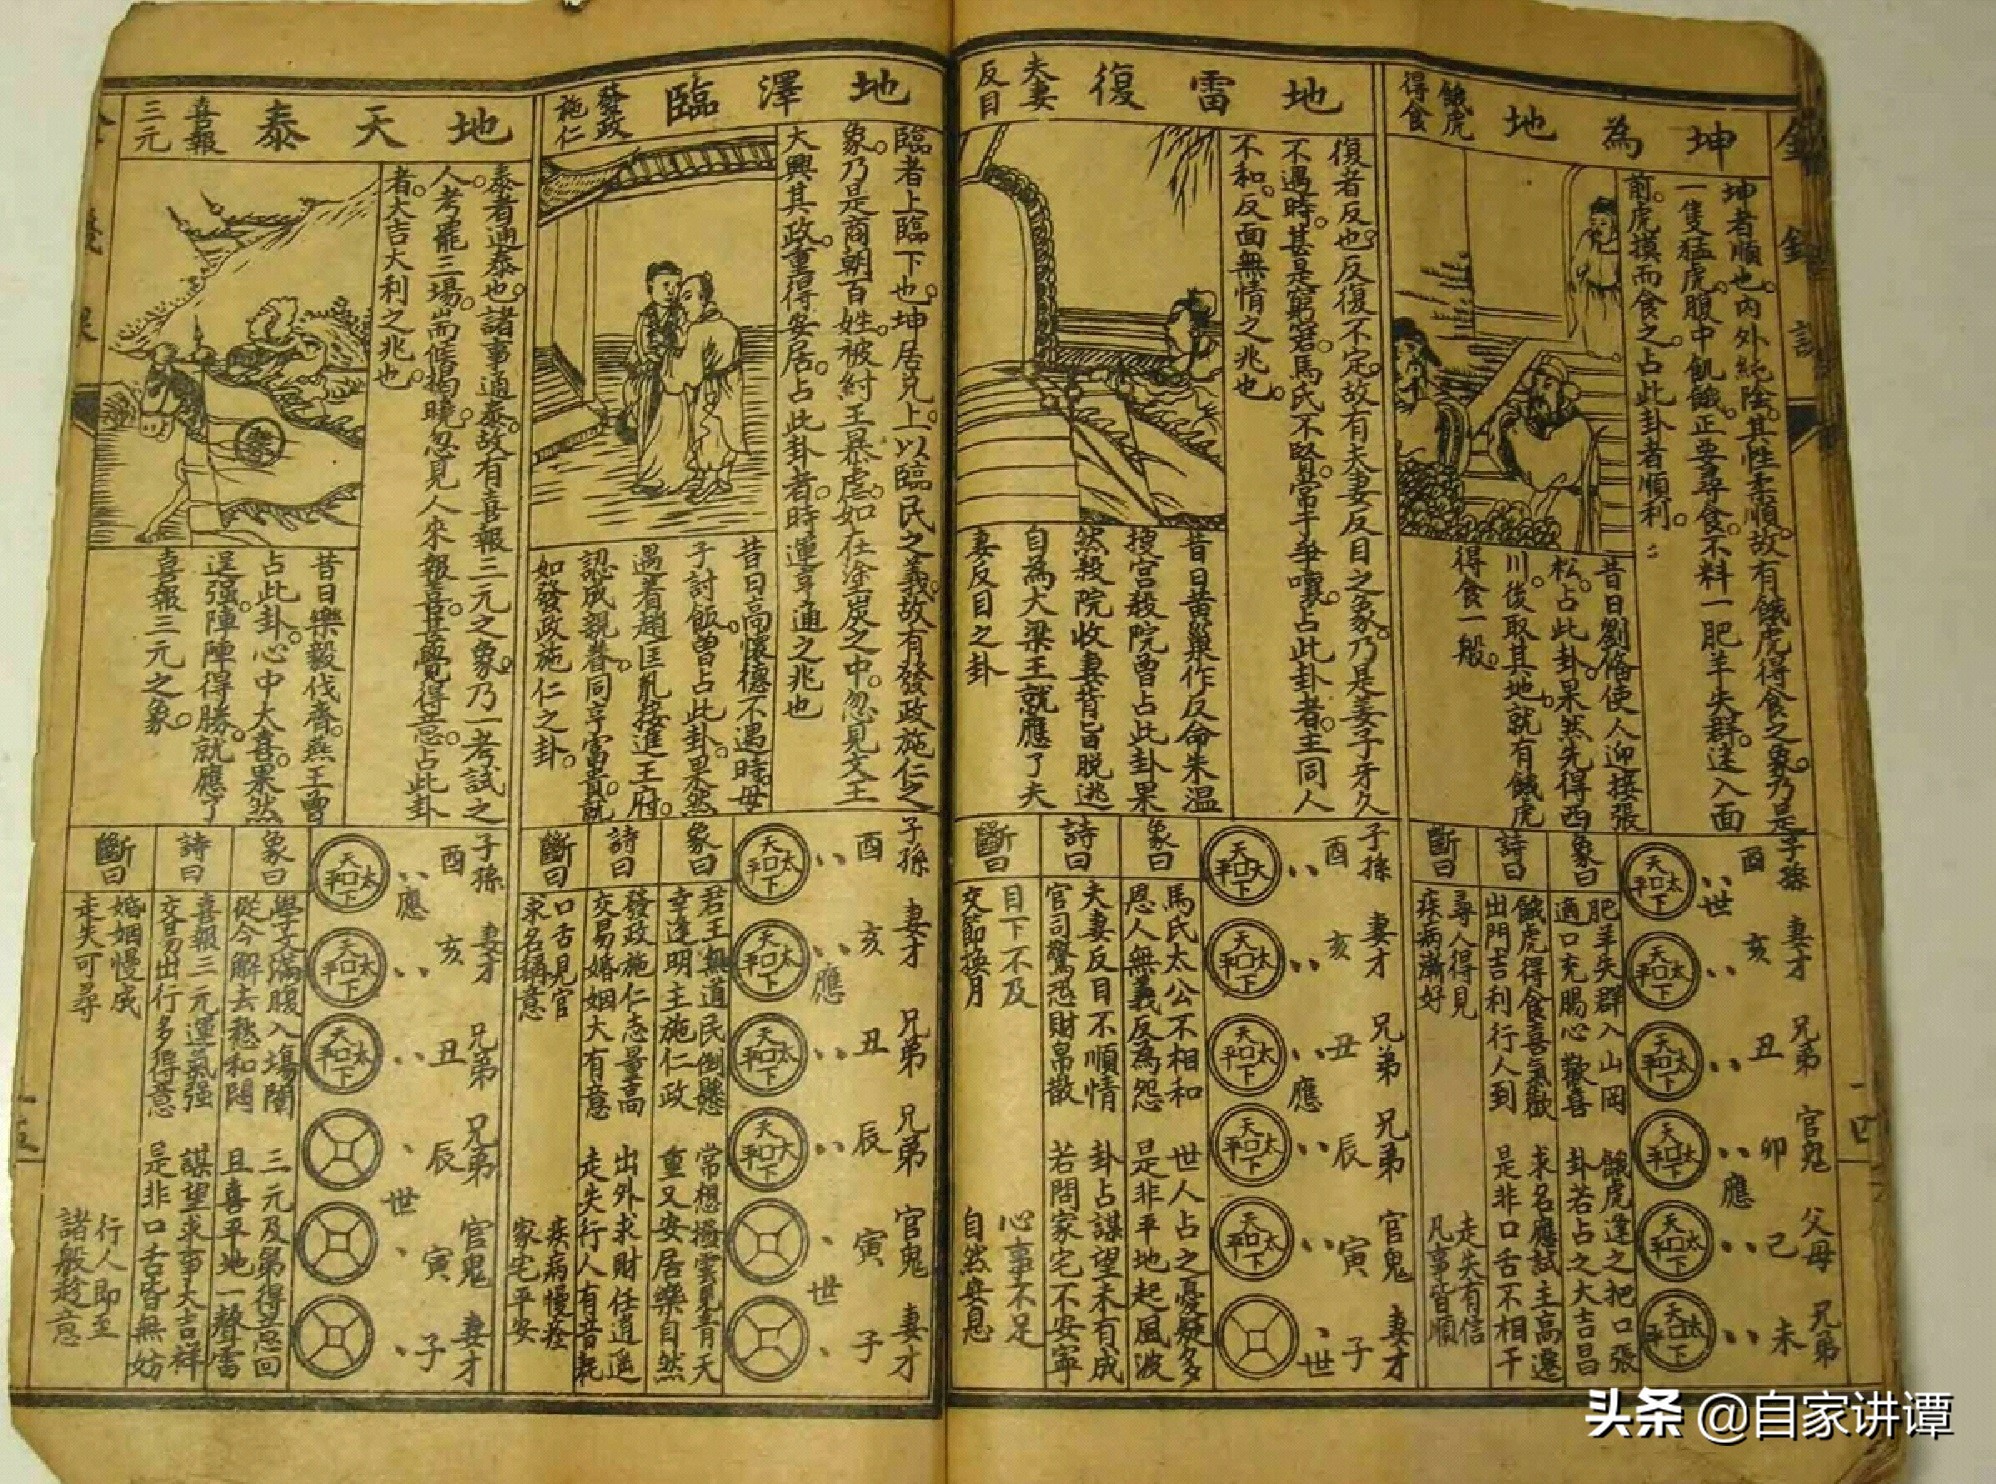 坤為地
餓虎
得食
坤者順也。內外純陰。其性柔順。故有餓虎得食之象。乃是
一隻猛虎。腹中飢餓。正要尋食。不料一肥羊失群。迷入面
前。虎摸而食之。占此卦者順利。
昔日劉俻使人迎接張
松。占此卦。果然先得西
川。後取其地。就有餓虎
得食一般。
子孫 妻才 兄弟 官鬼 父母 兄弟
酉 亥 丑 卯 己 未
世 應
天下太平
天下太平
天下太平
天下太平
天下太平
天下太平
象曰
肥羊失群入山岡 餓虎逢之把口張
適口充腸心歡喜 卦若占之大吉昌
詩曰
餓虎得食喜氣歡 求名應試主高遷
出門吉利行人到 是非口舌不相干
斷曰
尋人得見 走失有信
疾病漸好 凡事皆順
地雷復
夫妻
反目
復者反也。反復不定。故有夫妻反目之象。乃是姜子牙久
不遇時。甚是窮窘。馬氏不賢。常子爭嚷。占此卦者。主同人
不和。反面無情之兆也。
昔日黃巢作反。命朱溫
搜宮殺院。曾占此卦。果
然殺院收妻。背旨脱逃
自為大梁王。就應了夫
妻反目之卦
子孫 妻才 兄弟 兄弟 官鬼 妻才
酉 亥 丑 辰 寅 子
應 世
天下太平
天下太平
天下太平
天下太平
天下太平
象曰
馬氏太公不相和 世人占之憂疑多
恩人無義反為怨 是非平地起風波
詩曰
夫妻反目不順情 卦占謀望未有成
官司驚恐財帛散 若問家宅不安寧
斷曰
目下不及 心事不足
交節換月 自然無息
地澤臨
發政
施仁
臨者上臨下也。坤居兄上。以臨民之義。故有發政施仁之
象。乃是商朝百姓。被紂王暴虐。如在塗炭之中。忽見文王
大興其政。重得安居。占此卦者。時運亨通之兆也
昔日高懷德不遇時。母
子討飯。曾占此卦。果然
遇着趙匡胤。接進王府。
認成親眷。同享富貴。就
如發政施仁之卦。
子孫 妻才 兄弟 兄弟 官鬼 妻才
酉 亥 丑 辰 寅 子
應 世
天下太平
天下太平
天下太平
天下太平
象曰
君王無道民倒懸 常想撥雲見青天
幸逢明主施仁政 重又安居樂自然
詩曰
發政施仁志量高 出外求財任逍遥
交易婚姻大有意 走失行人有音耗
斷曰
口舌見官 疾病慢痊
求名稱意 家宅平安
地天泰
喜報
三元
泰者通泰也。諸事通泰。故有喜報三元之象。乃一考試之
人。考罷三場。而候揭曉。忽見人來報喜。甚覺得意。占此卦
者。大吉大利之兆也。
昔日樂毅伐齊。燕王曾
占此卦。心中大喜。果然
逞強。陣陣得勝。就應了
喜報三元之象。
子孫 妻才 兄弟 兄弟 官鬼 妻才
酉 亥 丑 辰 寅 子
應 世
天下太平
天下太平
天下太平
象曰
學文滿腹入場闈 三元及第得意回
從今解去愁和悶 且喜平地一聲雷
詩曰
喜報三元運氣强 謀望求事大吉祥
交易出行多得意 是非口舌皆無妨
斷曰
婚姻慢成 行人即至
走失可尋 諸般趁意
头条 @自家讲谭